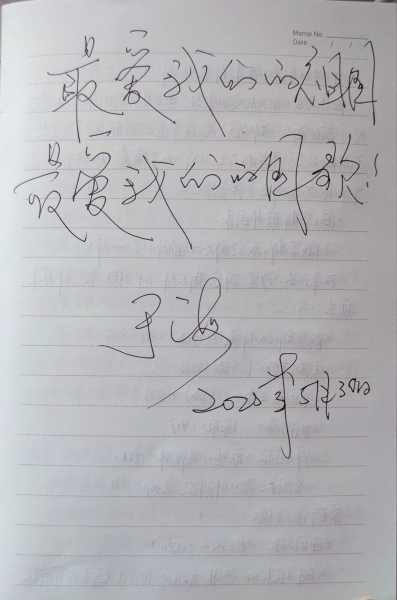 Memo No.
Date / /
最爱我们的祖国
最爱我们的国歌!
于海
2020年5月30日